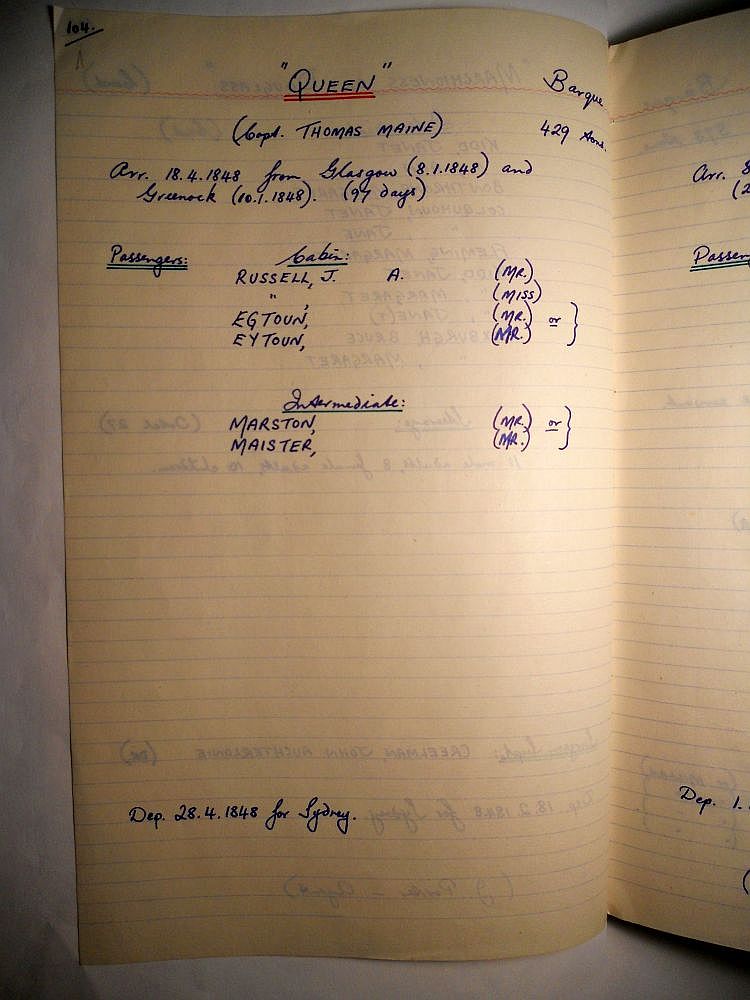 104.
"QUEEN" Barque
(Capt. THOMAS MAINE) 429 tons.
Arr. 18.4.1848 from Glasgow (8.1.1848) and
Greenock (10.1.1848). (97 days)
Passengers: Cabin:
RUSSELL, J. A. (MR.)
" , (MISS)
EGTOUN, (MR.) or }
EYTOUN, (MR.)
Intermediate:
MARSTON, (MR.) or }
MAISTER, (MR.)
Dep. 28.4.1848 for Sydney.
Arr. 8
(2
Passen
Dep. 1.